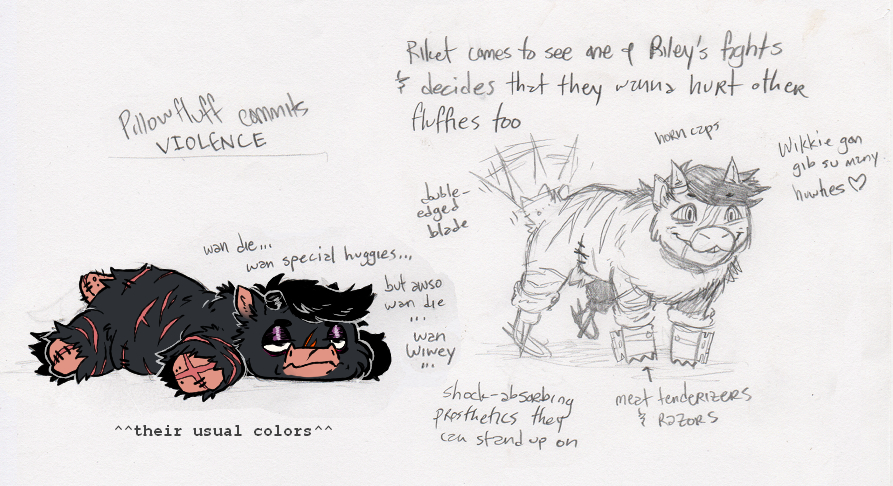 Pillowfluff commits
VIOLENCE
Riket comes to see me & Riley's fights
& decides that they wanna hurt other
fluffies too
horn caps
Wikkie gon
gib su many
huwties ♡
double-
edged
blade
wan die...
wan special huggies...
but awso
wan die
...
wan
Wiwey
...
shock-absorbing
prosthetics they
can stand up on
↑
meat tenderizers
& razors
^^their usual colors^^